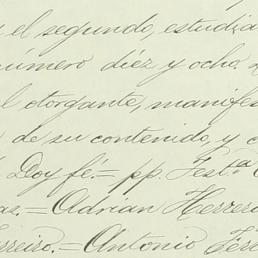 y el segundo, estudia
numero diez y ocho
el otorgante, manifes
de su contenido, y c
Doy fé.=pp. Testª
as.=Adrian Herrero
rreiro.=Antonio Fer